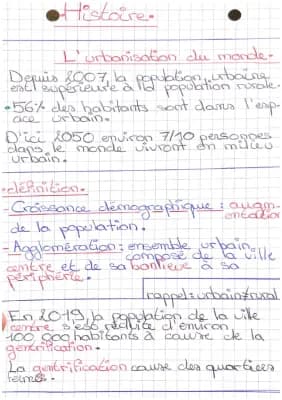 Histoire.
L'urbanisation du monde.
Depuis 2007, la population urbaine
est supérieure à la population rurale.
• 56% des habitants sont dans l'esp-
ace urbain.
D'ici 2050 environ 7/10 personnes
dans le monde vivront en milieu
urbain.
• définition.
- Croissance démographique : augm-
entation
de la population.
- Agglomération : ensemble urbain
composé de la ville
centre et de sa banlieue à sa
périphérie.
rappel : urbain≠rural
En 2019, la population de la ville
centre s'est réduite d'environ
100 000 habitants à cause de la
gentrification.
La gentrification cause des quartiers